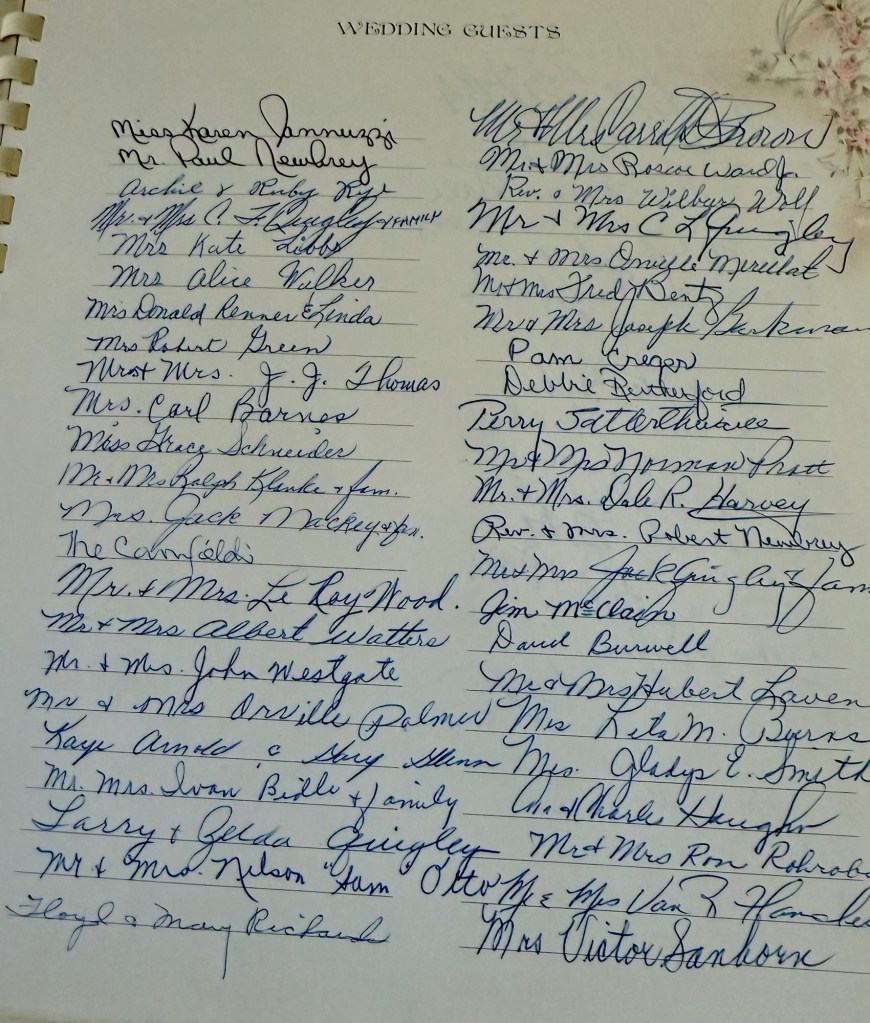 WEDDING GUESTS
Miss Karen Iannuzzi
Mr. Paul Newbrey
Archie & Ruby Kyle
Mr. & Mrs C. F. Quigley & FAMILY
Mrs Kate Tibbs
Mrs Alice Walker
Mrs Donald Renner & Linda
Mrs Robert Green
Mr & Mrs. J. J. Thomas
Mrs. Carl Barnes
Miss Grace Schneider
Mr & Mrs Ralph Klanke & fam.
Mrs. Jack Mackey & fm.
The Canfields
Mr. & Mrs. Le Roy Wood.
Mr & Mrs Albert Watters
Mr. & Mrs. John Westgate
Mr & Mrs Orville Palmer
Kaye Arnold & Glenn
Mr. Mrs. Ivan Bidle & family
Larry & Zelda Quigley
Mr & Mrs. Nelson "Sam" Otto
Floyd & Mary Richards
Mr & Mrs
Mr & Mrs Roscoe Ward Jr.
Rev. & Mrs Wilbur Wolf
Mr & Mrs C L Quigley
Mr. & Mrs Orville Merillat
Mr & Mrs Fred Bentz
Mr & Mrs Joseph
Pam Creger
Debbie Rutherford
Perry Satterthwaite
Mr & Mrs Norman Pratt
Mr. & Mrs. Dale R. Harvey
Rev. & Mrs. Robert Newbrey
Mr & Mrs Jack Quigley & fam
Jim McClain
David Burwell
Mr & Mrs Hubert Laven
Mrs Reta M. Burns
Mrs. Gladys E. Smith
& Charles Haughn
Mr & Mrs Ron Rohraba
Mr & Mrs Van R
Mrs Victor Sanborn